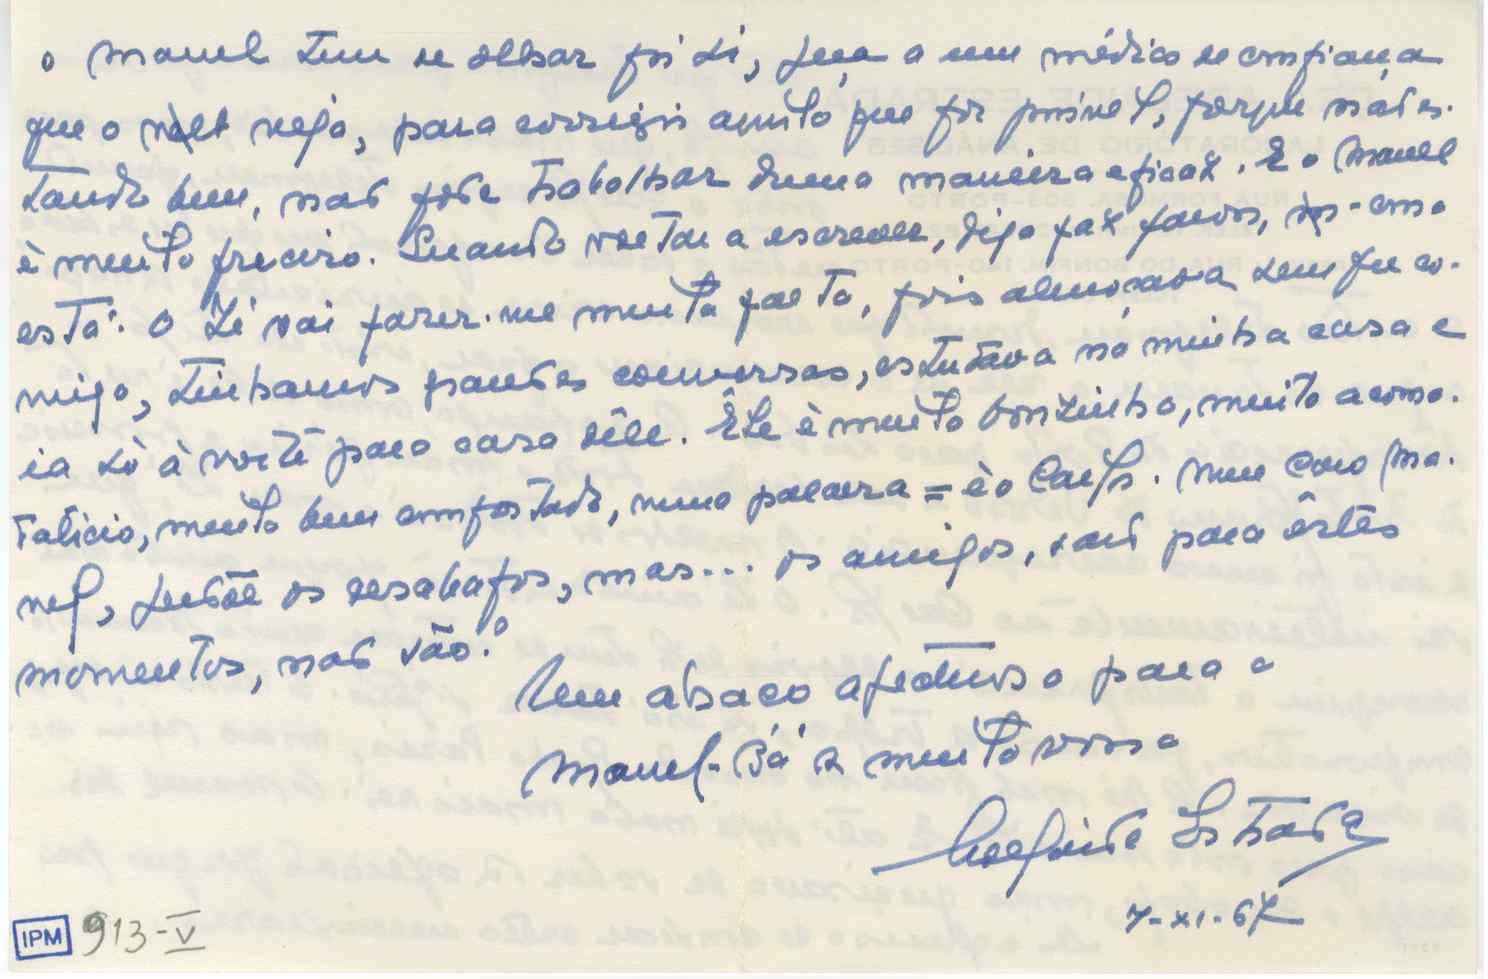 o Manel tem de olhar por si, peça a um médico de confiança
que o veja, para corrigir aquilo que for possivel, porque não es-
tando bem, não pode trabalhar duma maneira eficaz. E o Manel
è muito preciso. Quando voltar a escrever, diga faz favor, como
está. O Zé vai fazer-me muita falta, pois almoçava sempre co-
migo, tinhamos grandes conversas, estudava na minha casa e
ia só à noite para casa dêle. Êle è muito bonzinho, muito acomo-
taticio, muito bem confortado, numa palavra = è o Carlos. Meu caro Ma-
nel, perdõe os desabafos, mas... os amigos, são para êstes
momentos, não são?
Um abraço afectuoso para o
Manel-Bá e muito vosso
Estrada
7-XI-67
IPM 913-V